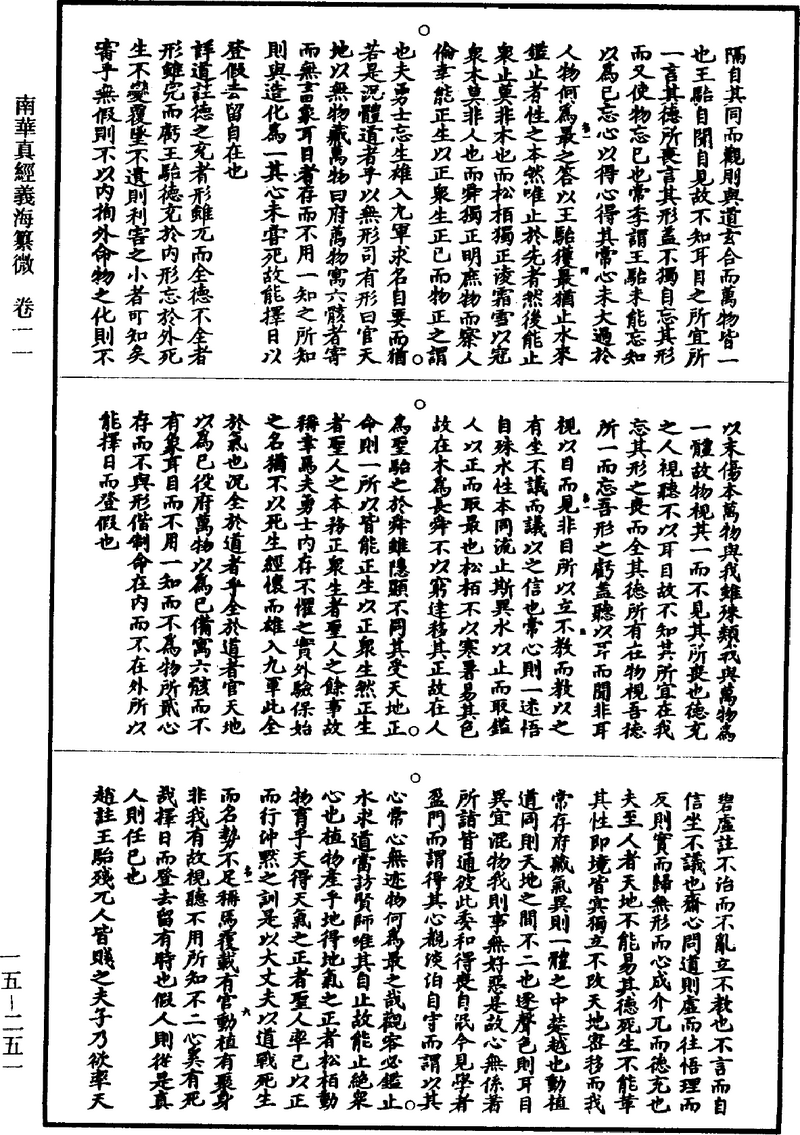 南華真經義海纂微 卷一一
隔自其同而觀則與道玄合而萬物皆一
也王駘自聞自見故不知耳目之所宜所
一言其德所喪言其形蓋不獨自忘其形
而又使物忘已也常季謂王駘未能忘知
以為已忘心以得心得其常心未大過於
人物何為最之答以王駘獲最猶止水來
鑑止者性之本然唯止於先者然後能止
衆止莫非木也而松栢獨正凌霜雪以冠
衆木莫非人也而舜獨正明庶物而察人
倫幸能正生以正衆生正已而物正之謂
也夫勇士忘生雄入九軍求名自要而猶
若是況體道者乎以無形司有形曰官天
地以無物藏萬物曰府萬物寓六骸者寄
而無言象耳目者存而不用一知之所知
則與造化為一其心未嘗死故能擇日以
登假去留自在也
詳道註德之充者形雖兀而全德不全者
形雖完而虧王駘德充於内形忘於外死
生不變覆墜不遺則利害之小者可知矣
審乎無假則不以内徇外命物之化則不
以末傷本萬物與我雖殊類我與萬物為
一體故物視其一而不見其所喪也德充
之人視聽不以耳目故不知其所宜在我
忘其形之喪而全其德所有在物視吾德
所一而忘吾形之虧蓋聽以耳而聞非耳
視以目而見非目所以立不教而教以之
有坐不議而議以之信也常心則一迷悟
自殊水性本同流止斯異水以止而取鑑
人以正而取最也松栢不以寒暑易其色
故在木為長舜不以窮達移其正故在人
為聖駘之於舜雖隱顯不同其受天地正
命則一所以皆能正生以正衆生然正生
者聖人之本務正衆生者聖人之餘事故
稱幸焉夫勇士内存不懼之實外驗保始
之名猶不以死生經懷而雄入九軍此全
於氣也況全於道者乎全於道者官天地
以為已役府萬物以為已備寓六骸而不
有象耳目而不用一知而不為物所貳心
存而不與形偕制命在内而不在外所以
能擇日而登假也
碧虛註不治而不亂立不教也不言而自
信坐不議也齋心問道則虛而往悟理而
反則實而歸無形而心成介兀而德充也
夫至人者天地不能易其德死生不能革
其性即境皆真獨立不改天地密移而我
常存府藏氣異則一體之中楚越也動植
道同則天地之間不二也逐聲色則耳目
異宜混物我則事無好惡是故心無係著
所詣皆通彼此委和得喪自泯今見學者
盈門而謂得其心觀淡泊自守而謂以其
心常心無迹物何為最之哉觀容必鑑止
水求道當訪賢師唯其自止故能止絶衆
心也植物產乎地得地氣之正者松栢動
物育乎天得天氣之正者聖人率已以正
而行沖默之訓是以大丈夫以道戰死生
而名勢不足稱焉覆載有官動植有聚身
非我有故視聽不用所知不二心奚有死
哉擇日而登去留有時也假人則從是真
人則任已也
趙註王駘殘兀人皆賤之夫子乃欲率天
一五-二五一